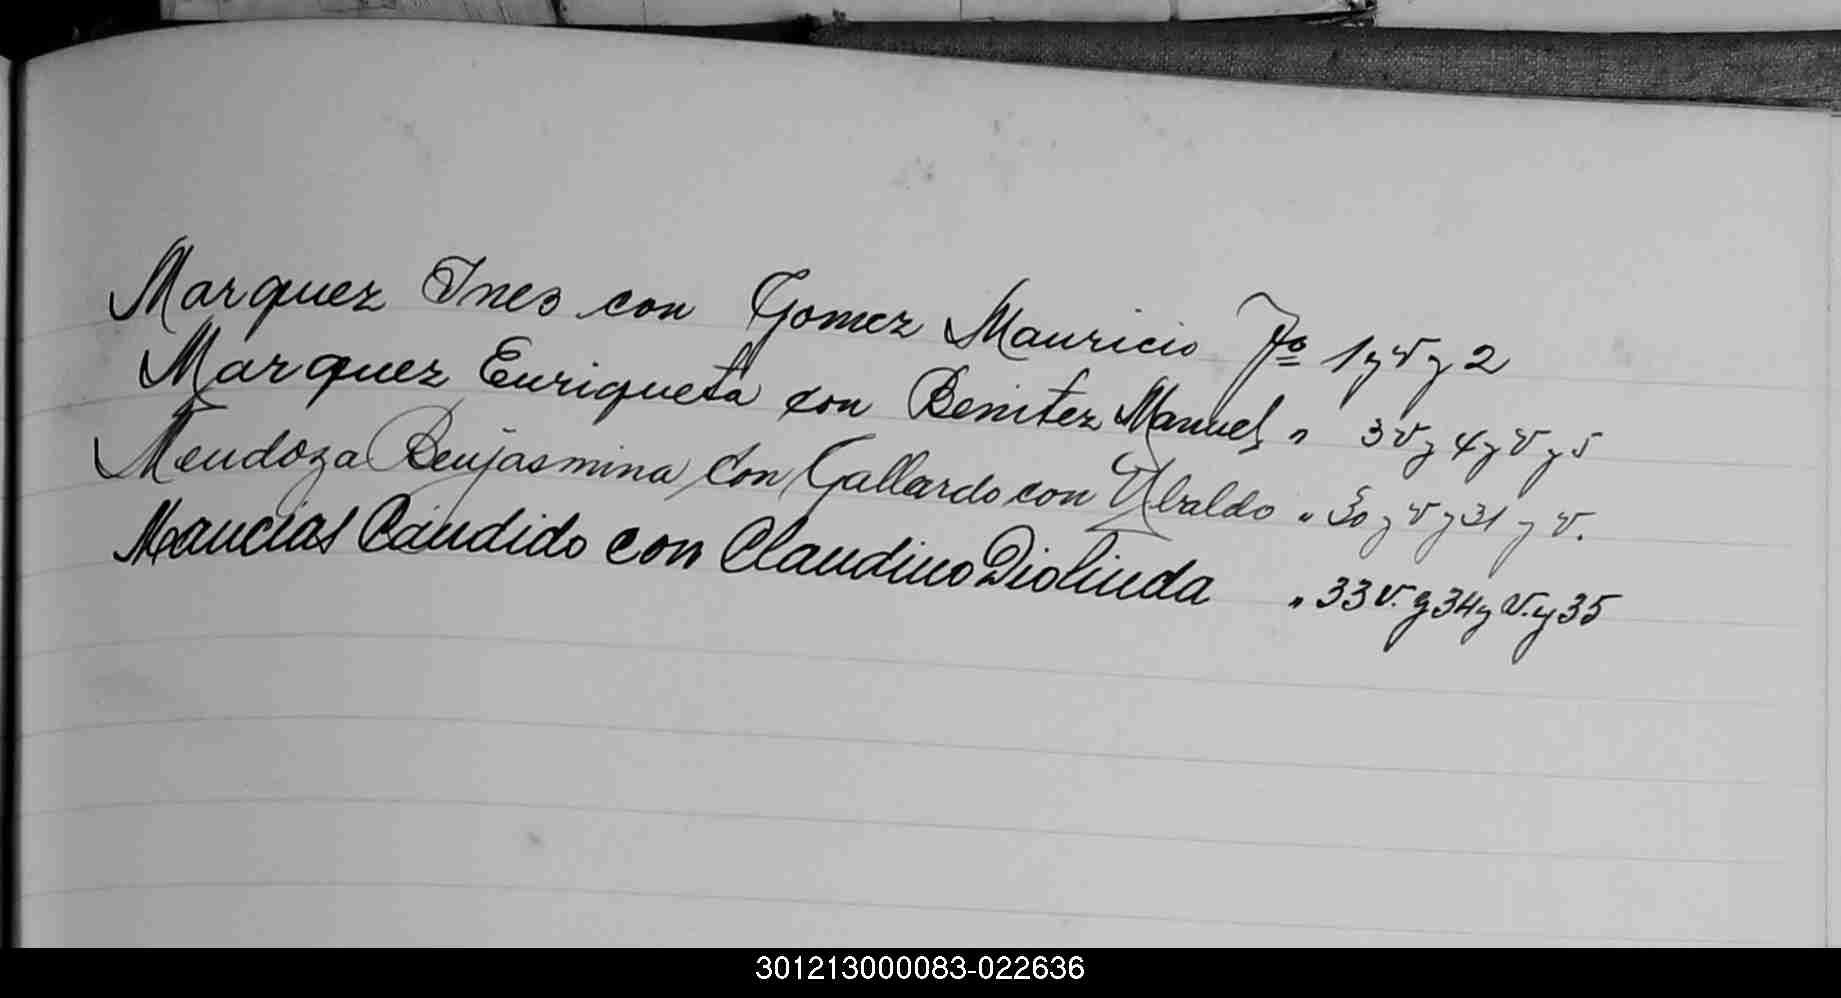 Marquez Ines con Gomez Mauricio Fº 1 y v y 2
Marquez Enriqueta con Benitez Manuel " 3 v y 4 y v y 5
Mendoza Benjasmina con Gallardo con Ubaldo " 30 y v y 31 y v.
Mancias Cándido con Claudino Diolinda " 33 v. y 34 y v. y 35
301213000083-022636